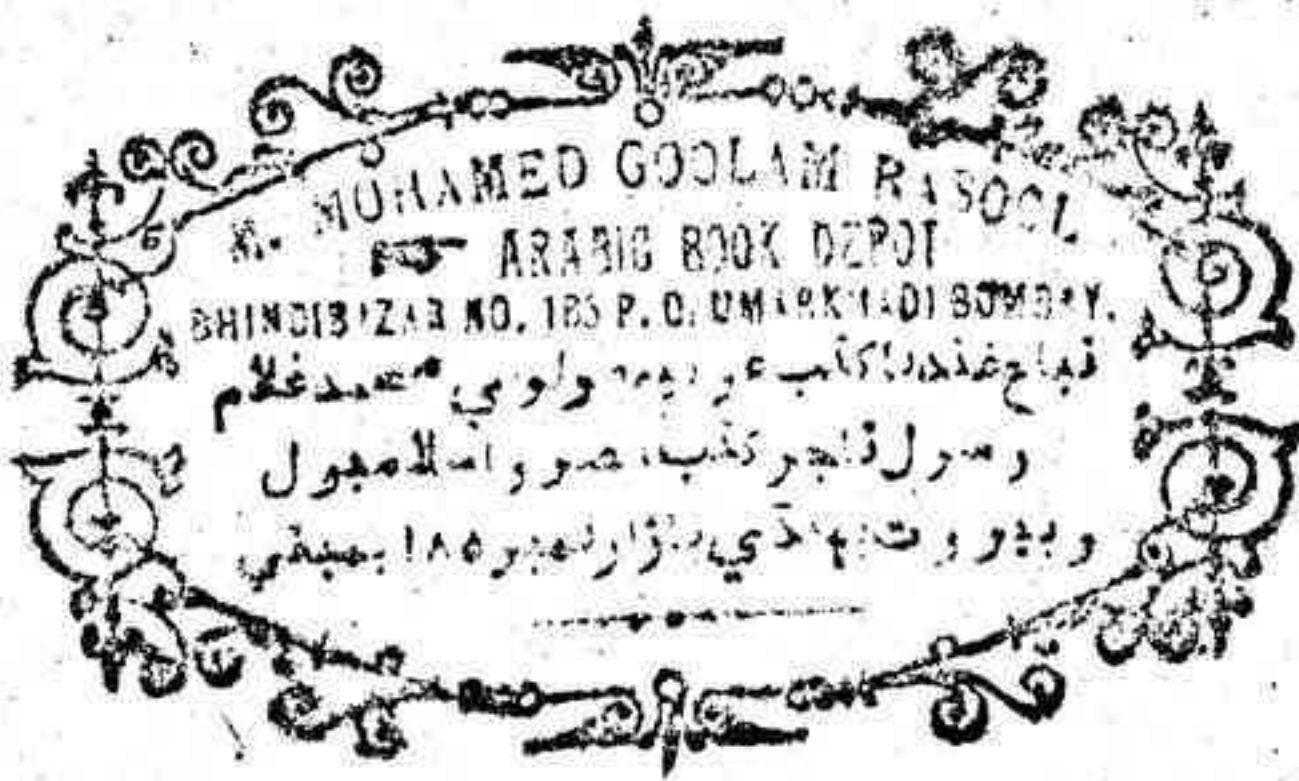 M. MOHAMED GOOLAM RASOOL,
ARABIC BOOK DEPOT
BHINDIBAZAR NO. 185 P. O. UMARKHADI BOMBAY.
تباع عندنا كتب عربيه مولوي محمد غلام
رسول تاجر كتب مصر و اسلامبول
و بيروت بهنڈي بازار نمبر ١٨٥ بمبئي